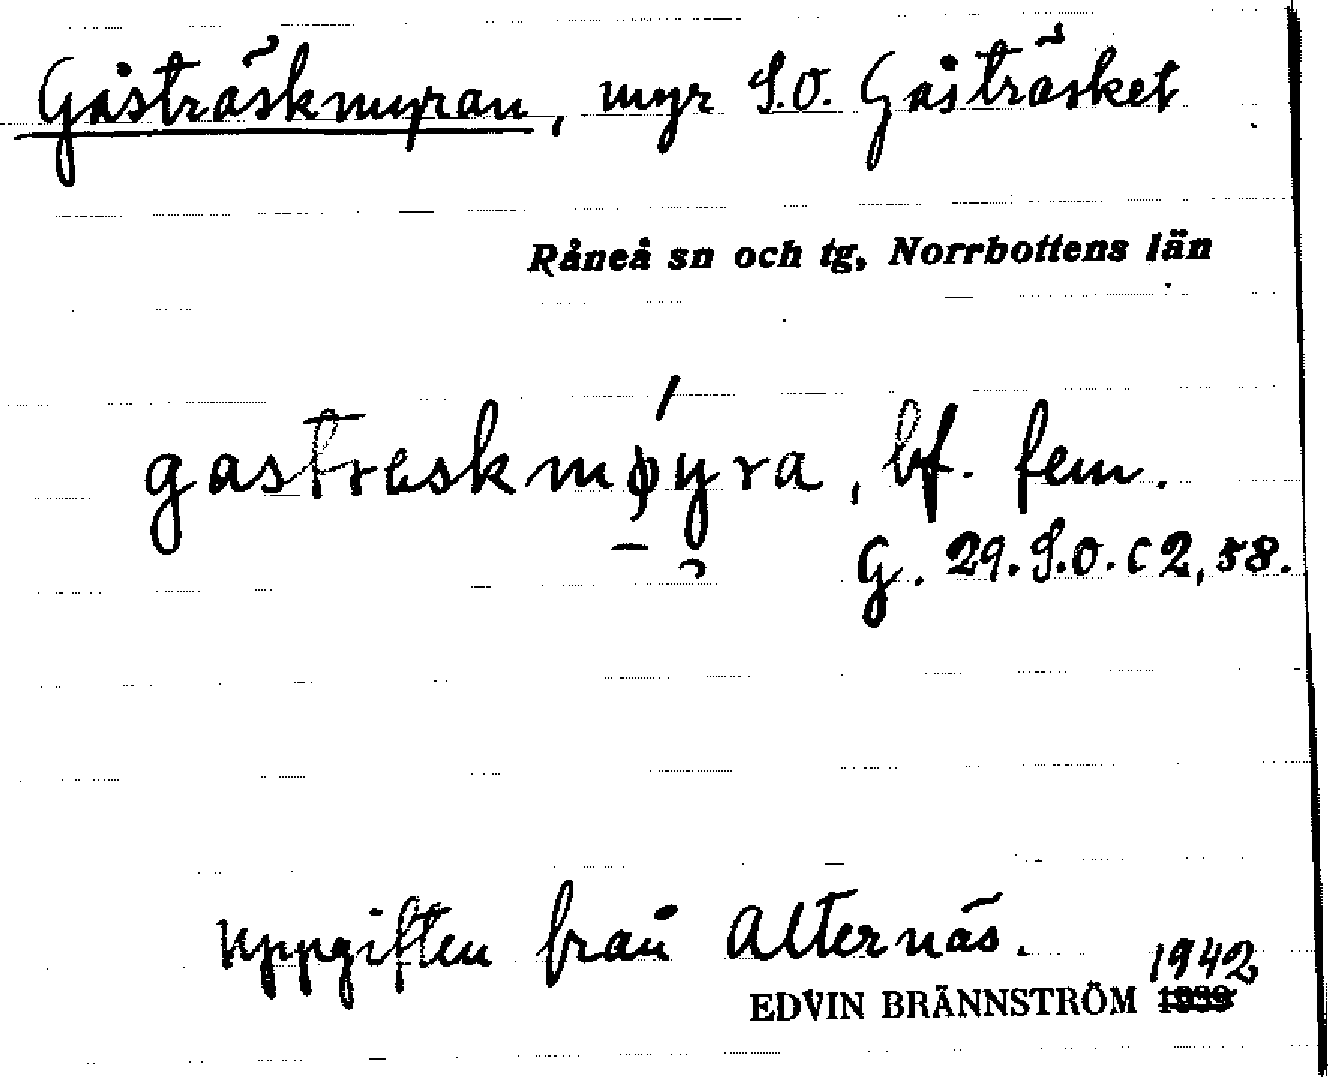 Gåsträskmyran, myr S.O. Gåsträsket
Råneå sn och tg, Norrbottens län
gastreskmøyra, bf. fem.
G. 29. S.O. C 2, 58.
Uppgiften från Alternäs.
1942
EDVIN BRÄNNSTRÖM 1939